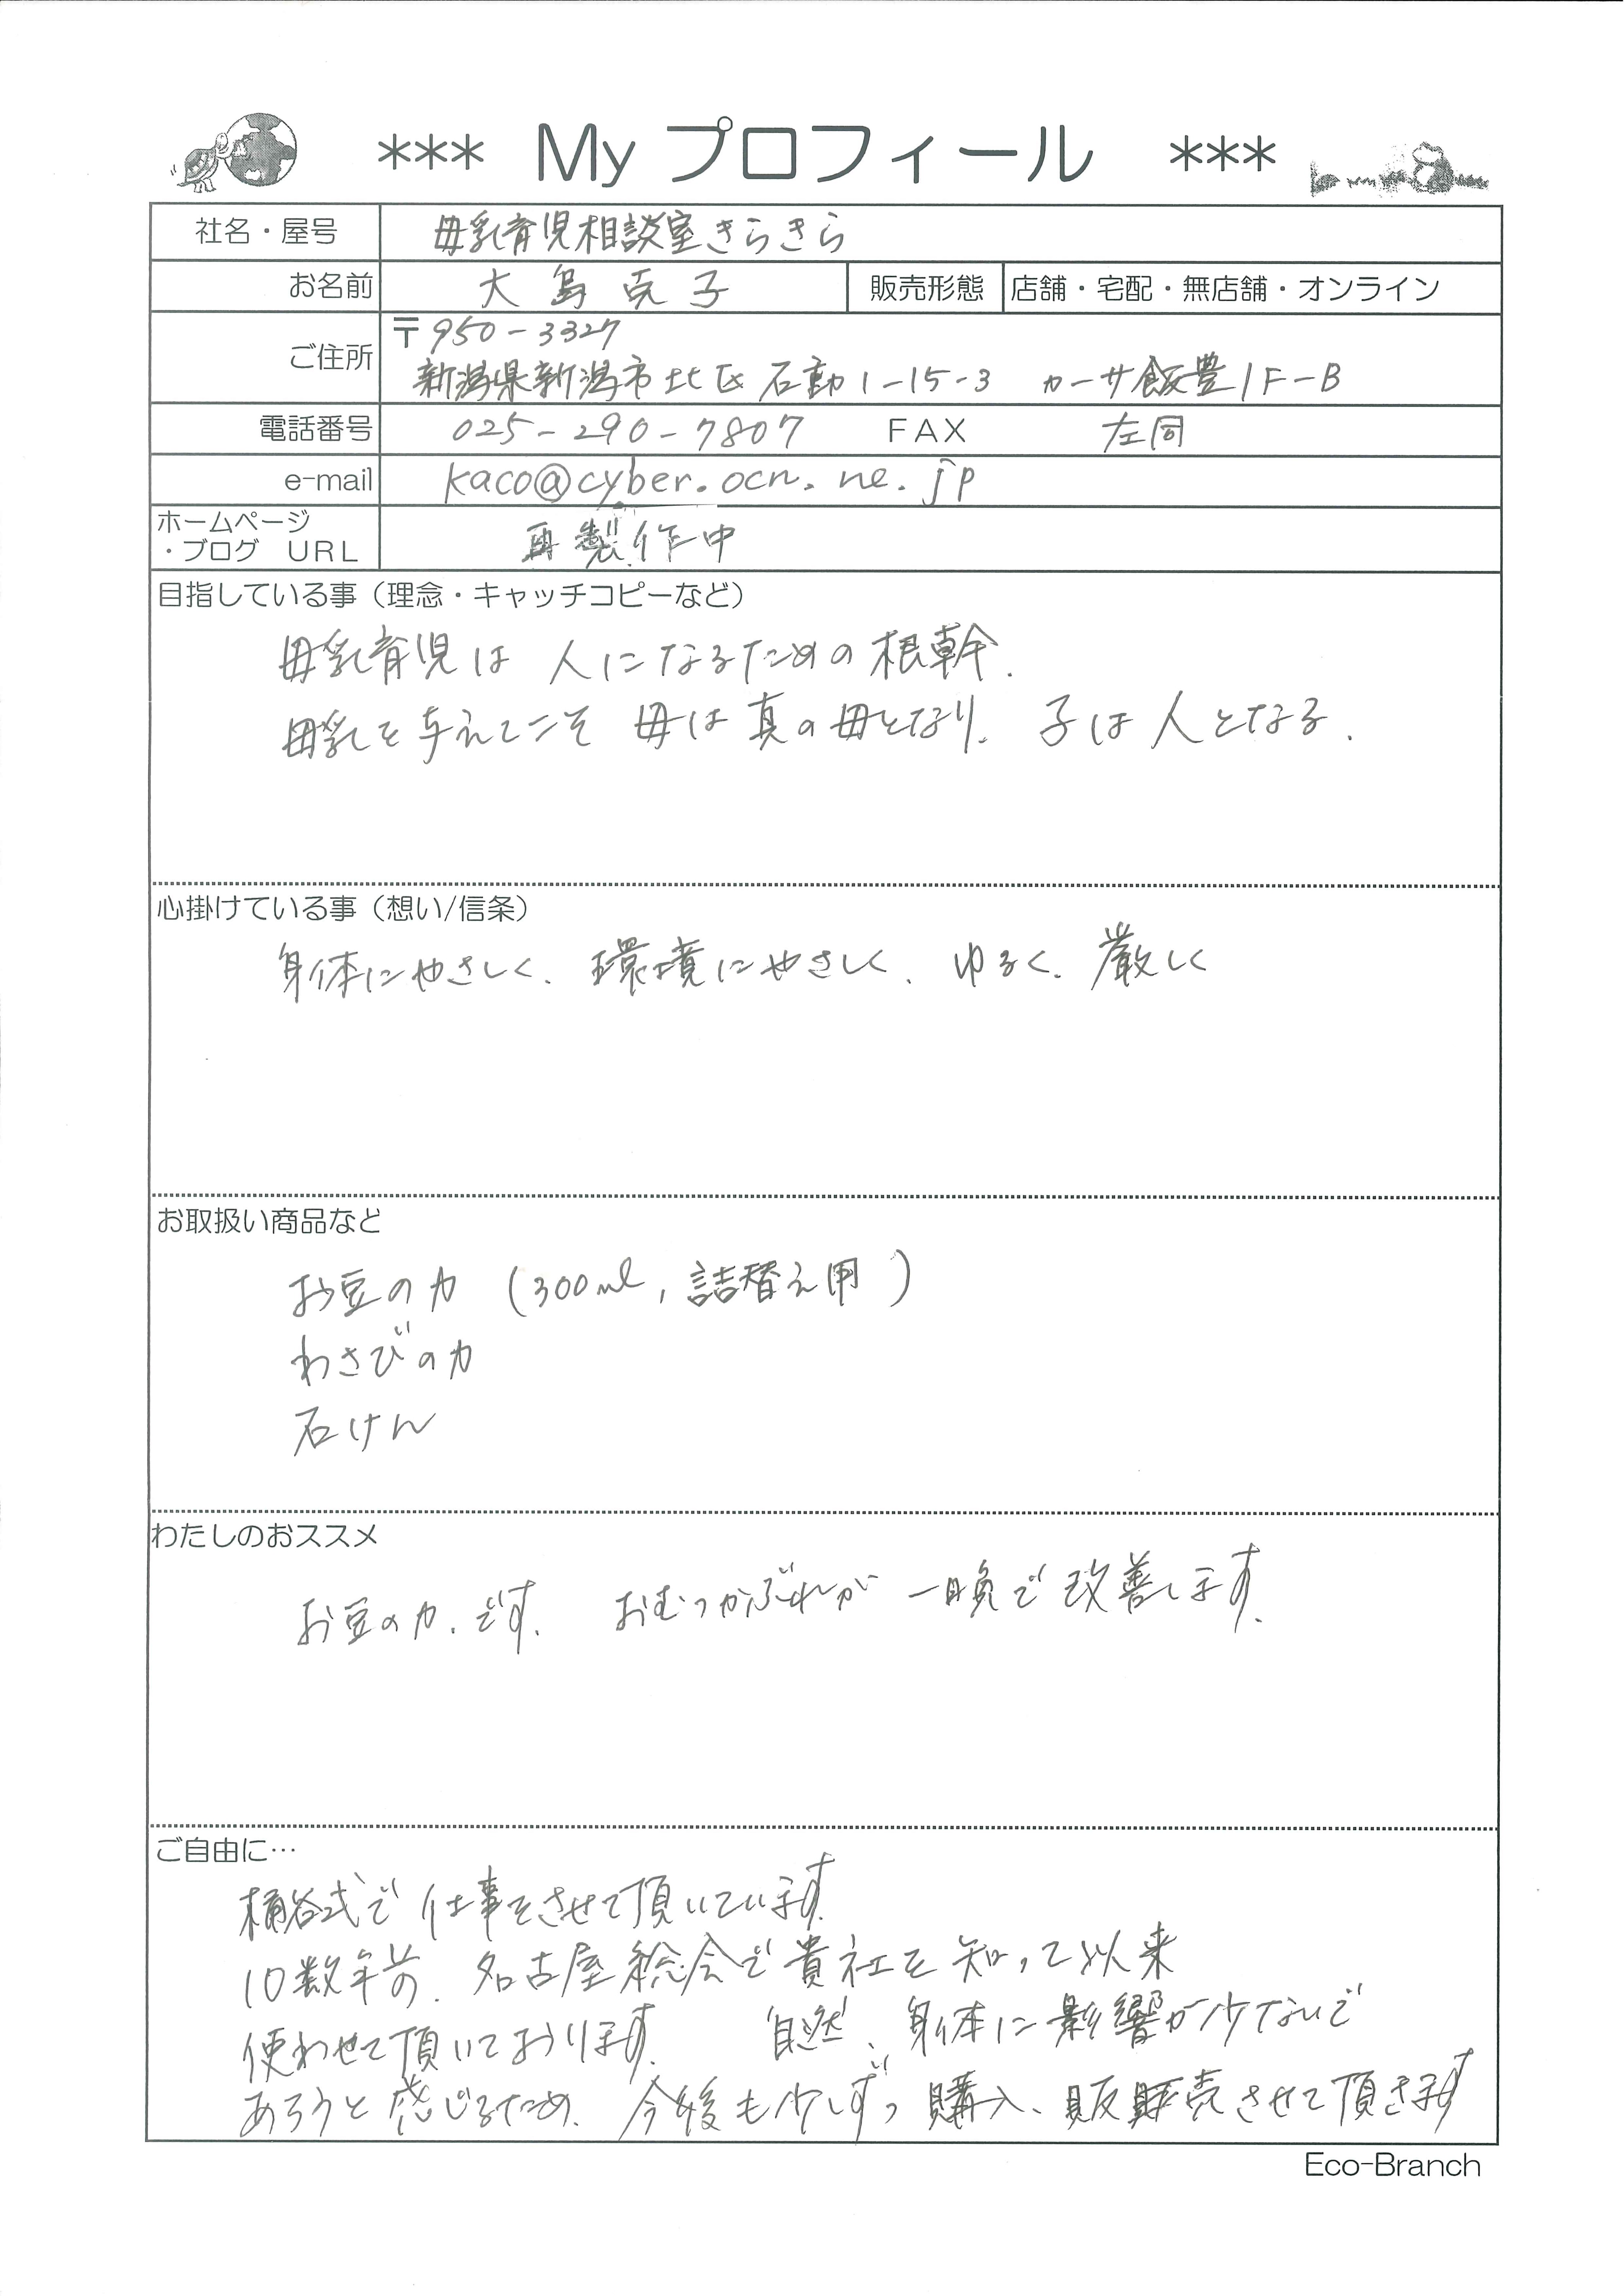 *** My プロフィール ***
社名・屋号 母乳育児相談室きらきら
お名前 大島克子 販売形態 店舗・宅配・無店舗・オンライン
ご住所 〒950-3327
新潟県新潟市北区石動1-15-3 カーサ飯豊1F-B
電話番号 025-290-7807 FAX 左同
e-mail kaco@cyber.ocn.ne.jp
ホームページ
・ブログ URL 再製作中
目指している事（理念・キャッチコピーなど）
母乳育児は 人になるための根幹.
母乳を与えてこそ 母は真の母となり、子は人となる.
心掛けている事（想い/信条）
身体にやさしく、環境にやさしく、ゆるく、厳しく
お取扱い商品など
お豆の力 (300ml, 詰替え用)
わさびの力
石けん
わたしのおススメ
お豆の力.です. おむつかぶれが 一晩で改善します.
ご自由に…
桶谷式で仕事をさせて頂いています.
10数年前、名古屋総会で貴社を知って以来
使わせて頂いております. 自然、身体に影響が少ないで
あろうと感じるため、今後も少しずつ購入、販売させて頂きます
Eco-Branch